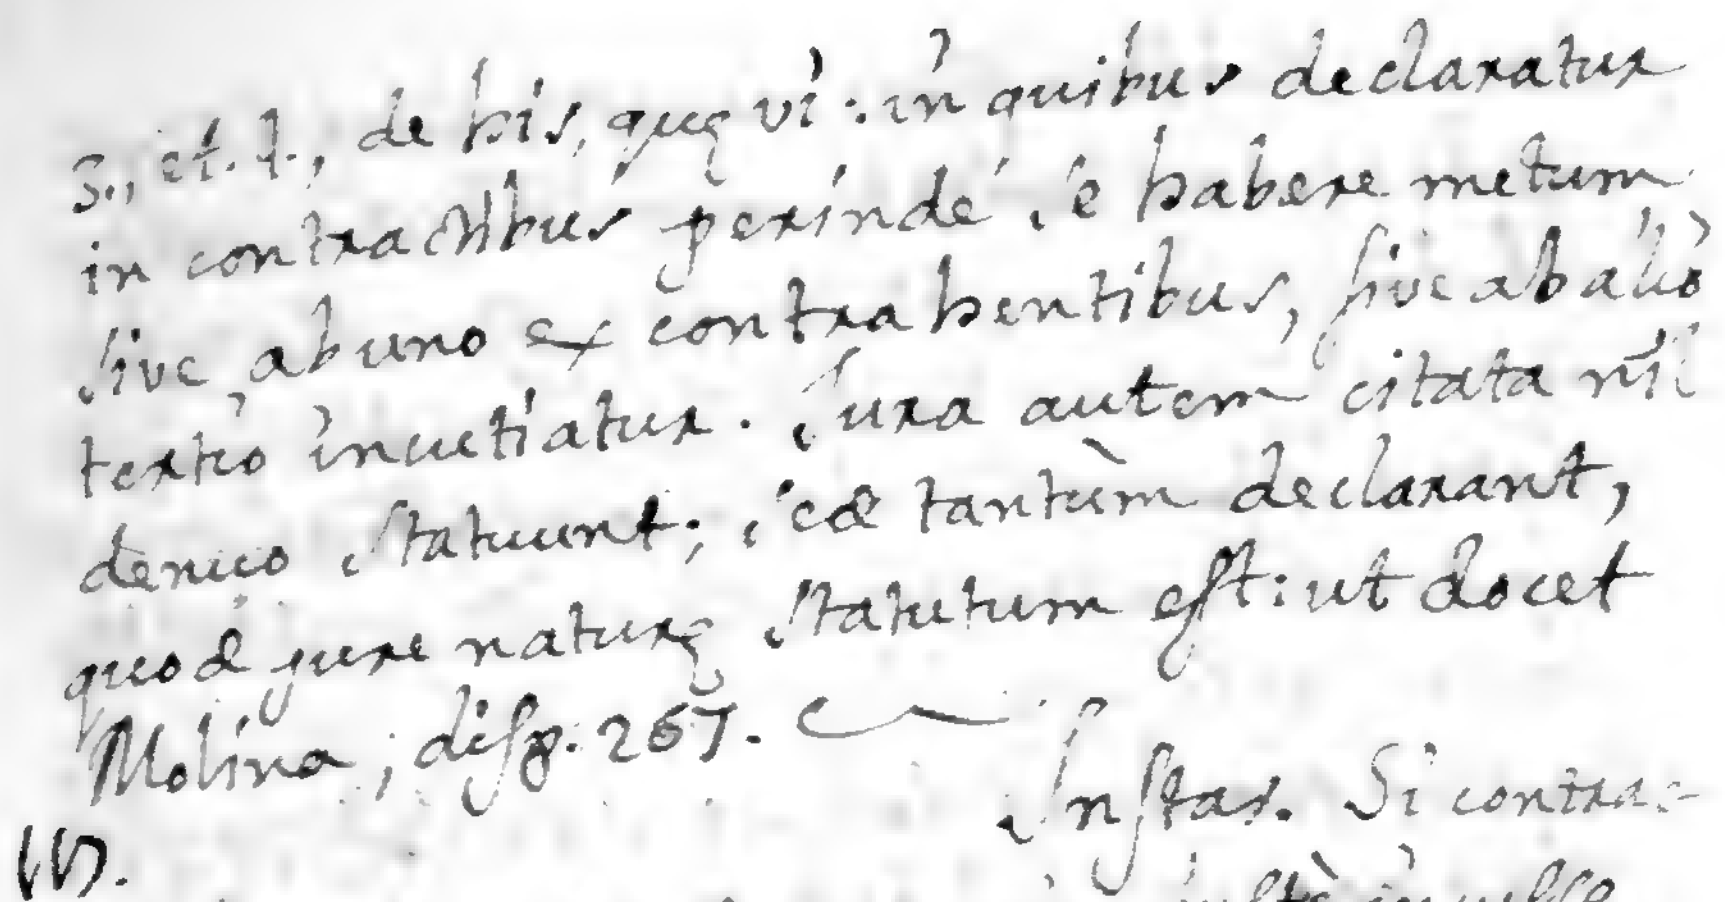 S., et. l., de his, quę vi: in quibus declaratur
in contractibus perindé se habere metum
sive ab uno ex contrahentibus, sive ab aliò
tertio incutiatur. Jura autem citata nĩl
denuo statuunt; sed tantùm declarant,
quod jure naturę statutum est: ut docet
Molina, disp. 267.
Instas. Si contrac-